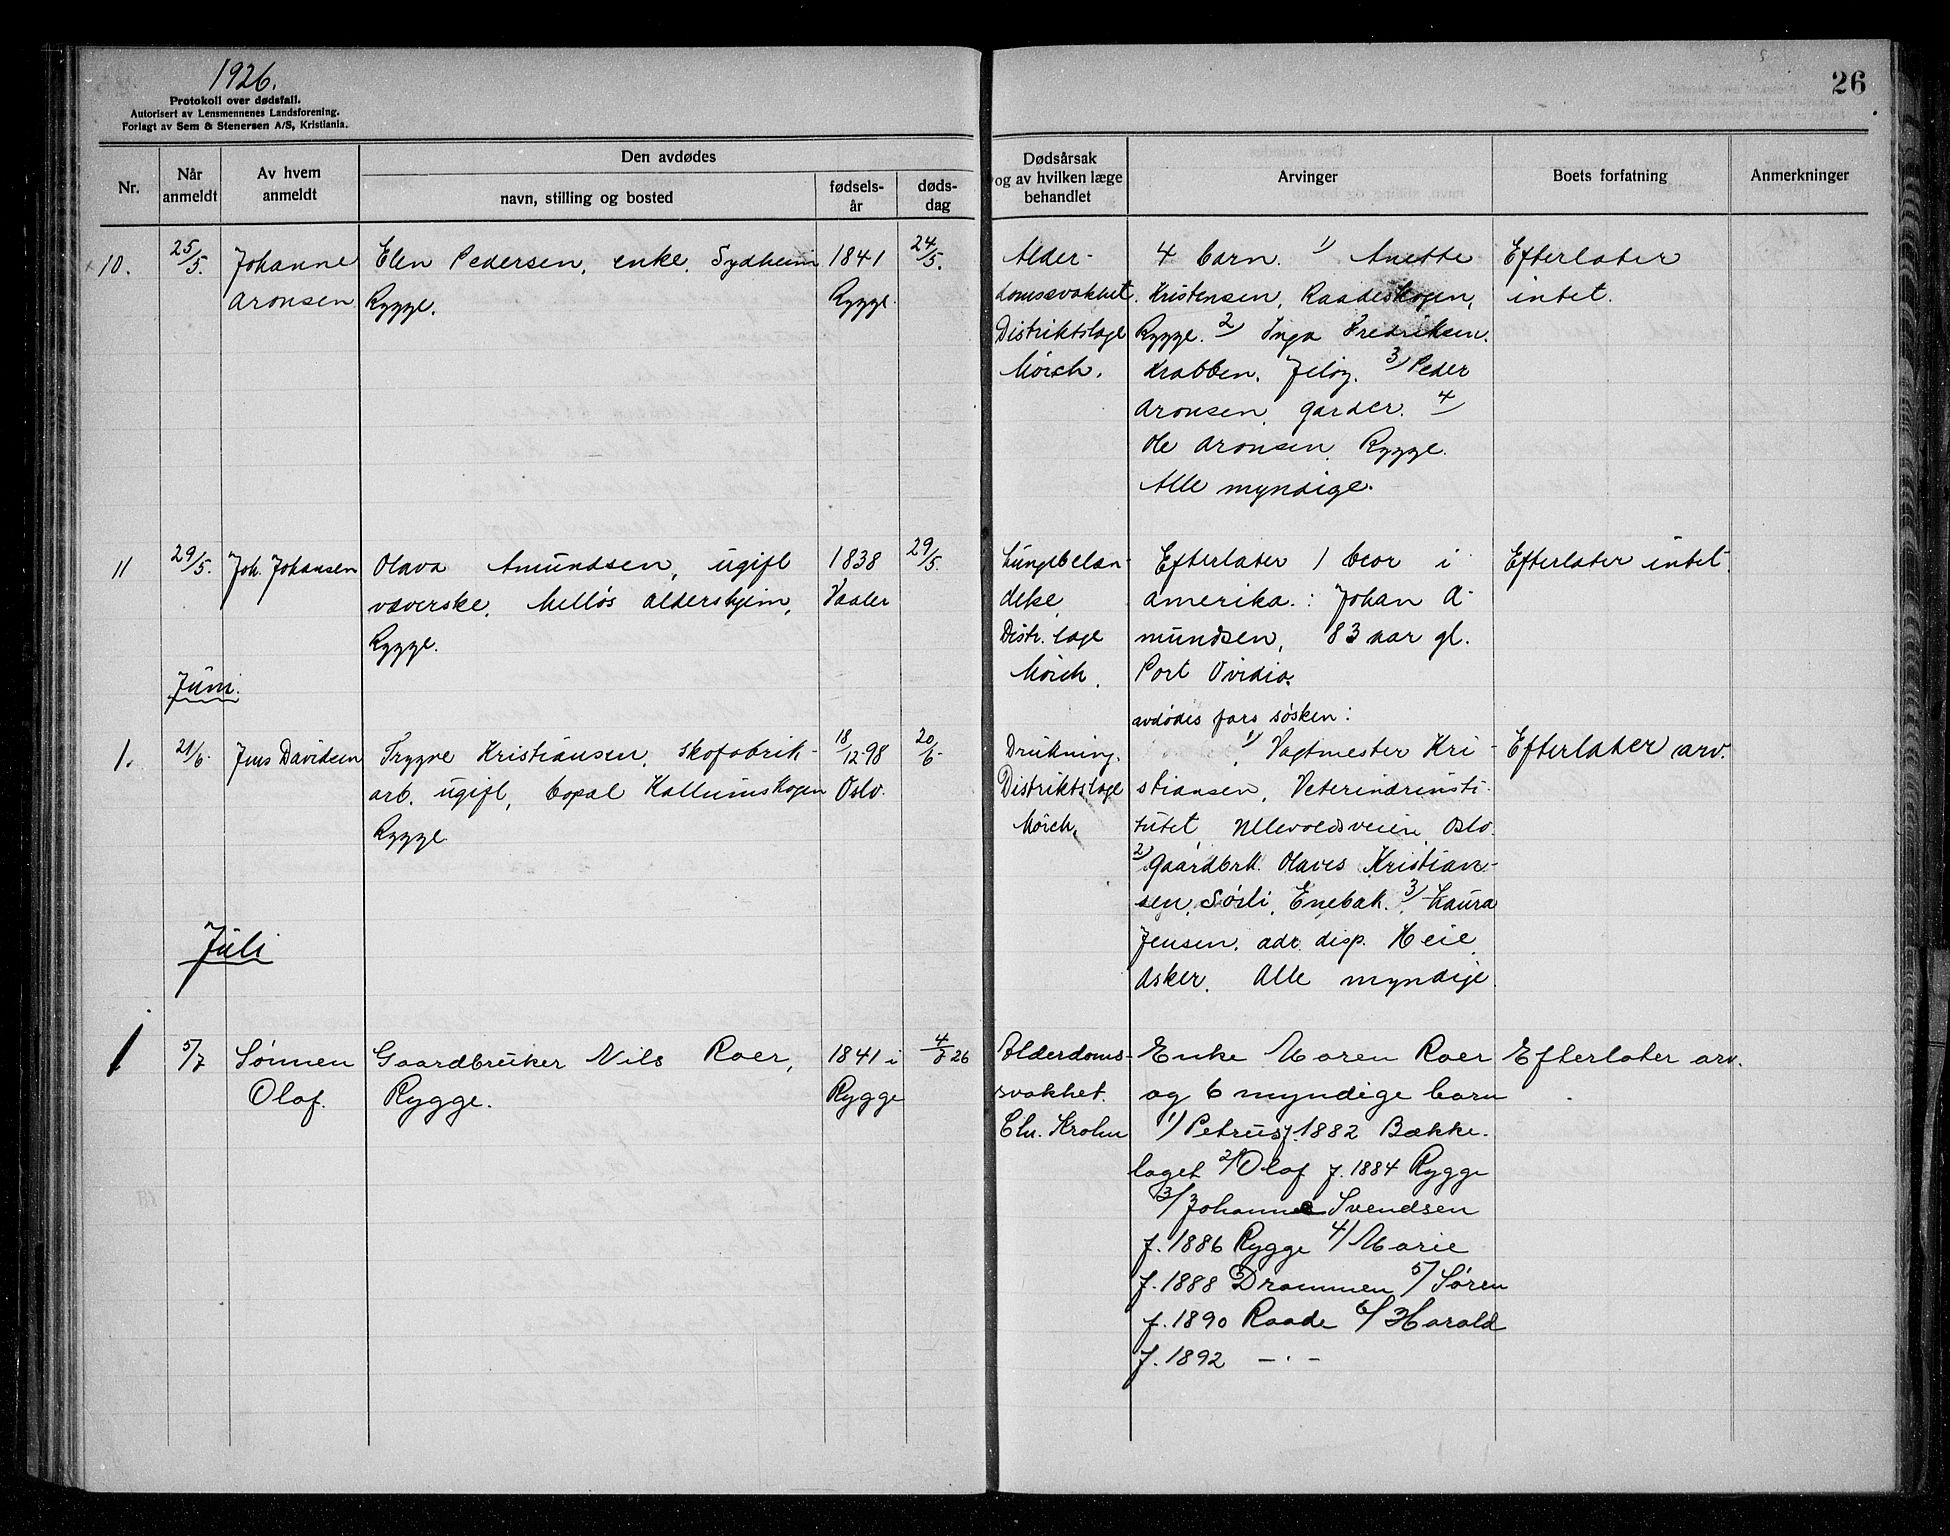 1926.
Protokoll over dødsfall.
Autorisert av Lensmennenes Landsforening.
Forlagt av Sem & Stenersen A/S, Kristiania.
26
Nr.
Når anmeldt
Av hvem anmeldt
Den avdødes
navn, stilling og bosted
fødsels-år
døds-dag
Dødsårsak og av hvilken læge behandlet
Arvinger
Boets forfatning
Anmerkninger
10.
25/5.
Johanne
Aronsen
Elen Pedersen, enke, Sydheim
Rygge.
1841
Rygge.
24/5.
Alder-
domssvakhet.
Distriktslæge
Mörch.
4 barn. 1/ Anette
Kristensen, Raadeskogen,
Rygge. 2/ Inga Fredriksen.
Krabben, Jeløy. 3/ Peder
Aronsen, Garder. 4/
Ole Aronsen, Rygge.
Alle myndige.
Efterlater
intet.
11
29/5.
Joh. Johansen
Olava Amundsen, ugift
væverske, Melløs aldershjem,
Rygge.
1838
Vaaler
29/5.
Lungebetæn-
delse,
Distr. læge
Mörch.
Efterlater 1 bror i
Amerika.: Johan A-
mundsen, 83 aar gl.
Port Ovidio.
Efterlater intet.
Juni.
1.
21/6.
Jens Davidsen
Trygve Kristiansen, skofabrik-
arb. ugift, bopæl Kallumskogen
Rygge
18/12-98
Oslo.
20/6-
Drukning.
Distriktslæge
Mörch.
avdødes fars søsken:
1/ Vagtmester Kri-
stiansen, Veterinærinsti-
tutet, Ullevoldsveien Oslo.
2/ Gaardbrk. Olaves Kristian-
sen, Sörli, Enebak. 3/ Laura
Jensen, adr. disp. Heie,
Asker. Alle myndige
Efterlater arv.
Juli
1
5/7
Sönnen
Olaf.
Gaardbruker Nils Roer,
Rygge.
1841 i
Rygge
4/7 26
Alderdoms-
svakhet.
Chr. Krohn
Enke Maren Roer
og 6 myndige barn
1/ Petrus f. 1882 Bække-
laget 2/ Olaf f. 1884 Rygge
3/ Johanne Svendsen
f. 1886 Rygge 4/ Marie
f. 1888 Drammen 5/ Sören
f. 1890 Raade 6/ Harald
f. 1892 — · —
Efterlater arv.